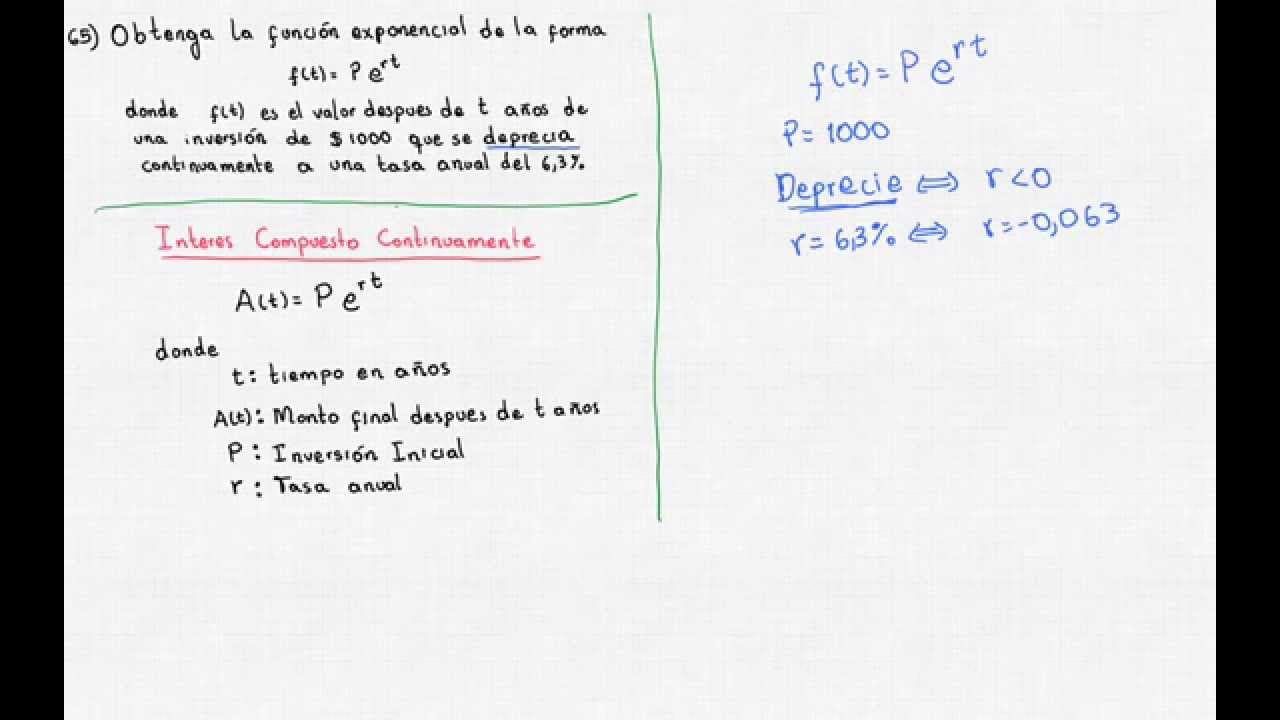 65) Obtenga la función exponencial de la forma
f(t) = P e^rt
donde f(t) es el valor despues de t años de
una inversión de $1000 que se deprecia
continuamente a una tasa anual del 6,3%.
Interes Compuesto Continuamente
A(t) = P e^rt
donde
t: tiempo en años
A(t): Monto final despues de t años
P: Inversión Inicial
r: Tasa anual
f(t) = P e^rt
P = 1000
Deprecie ⟺ r < 0
r = 6,3% ⟺ r = -0,063